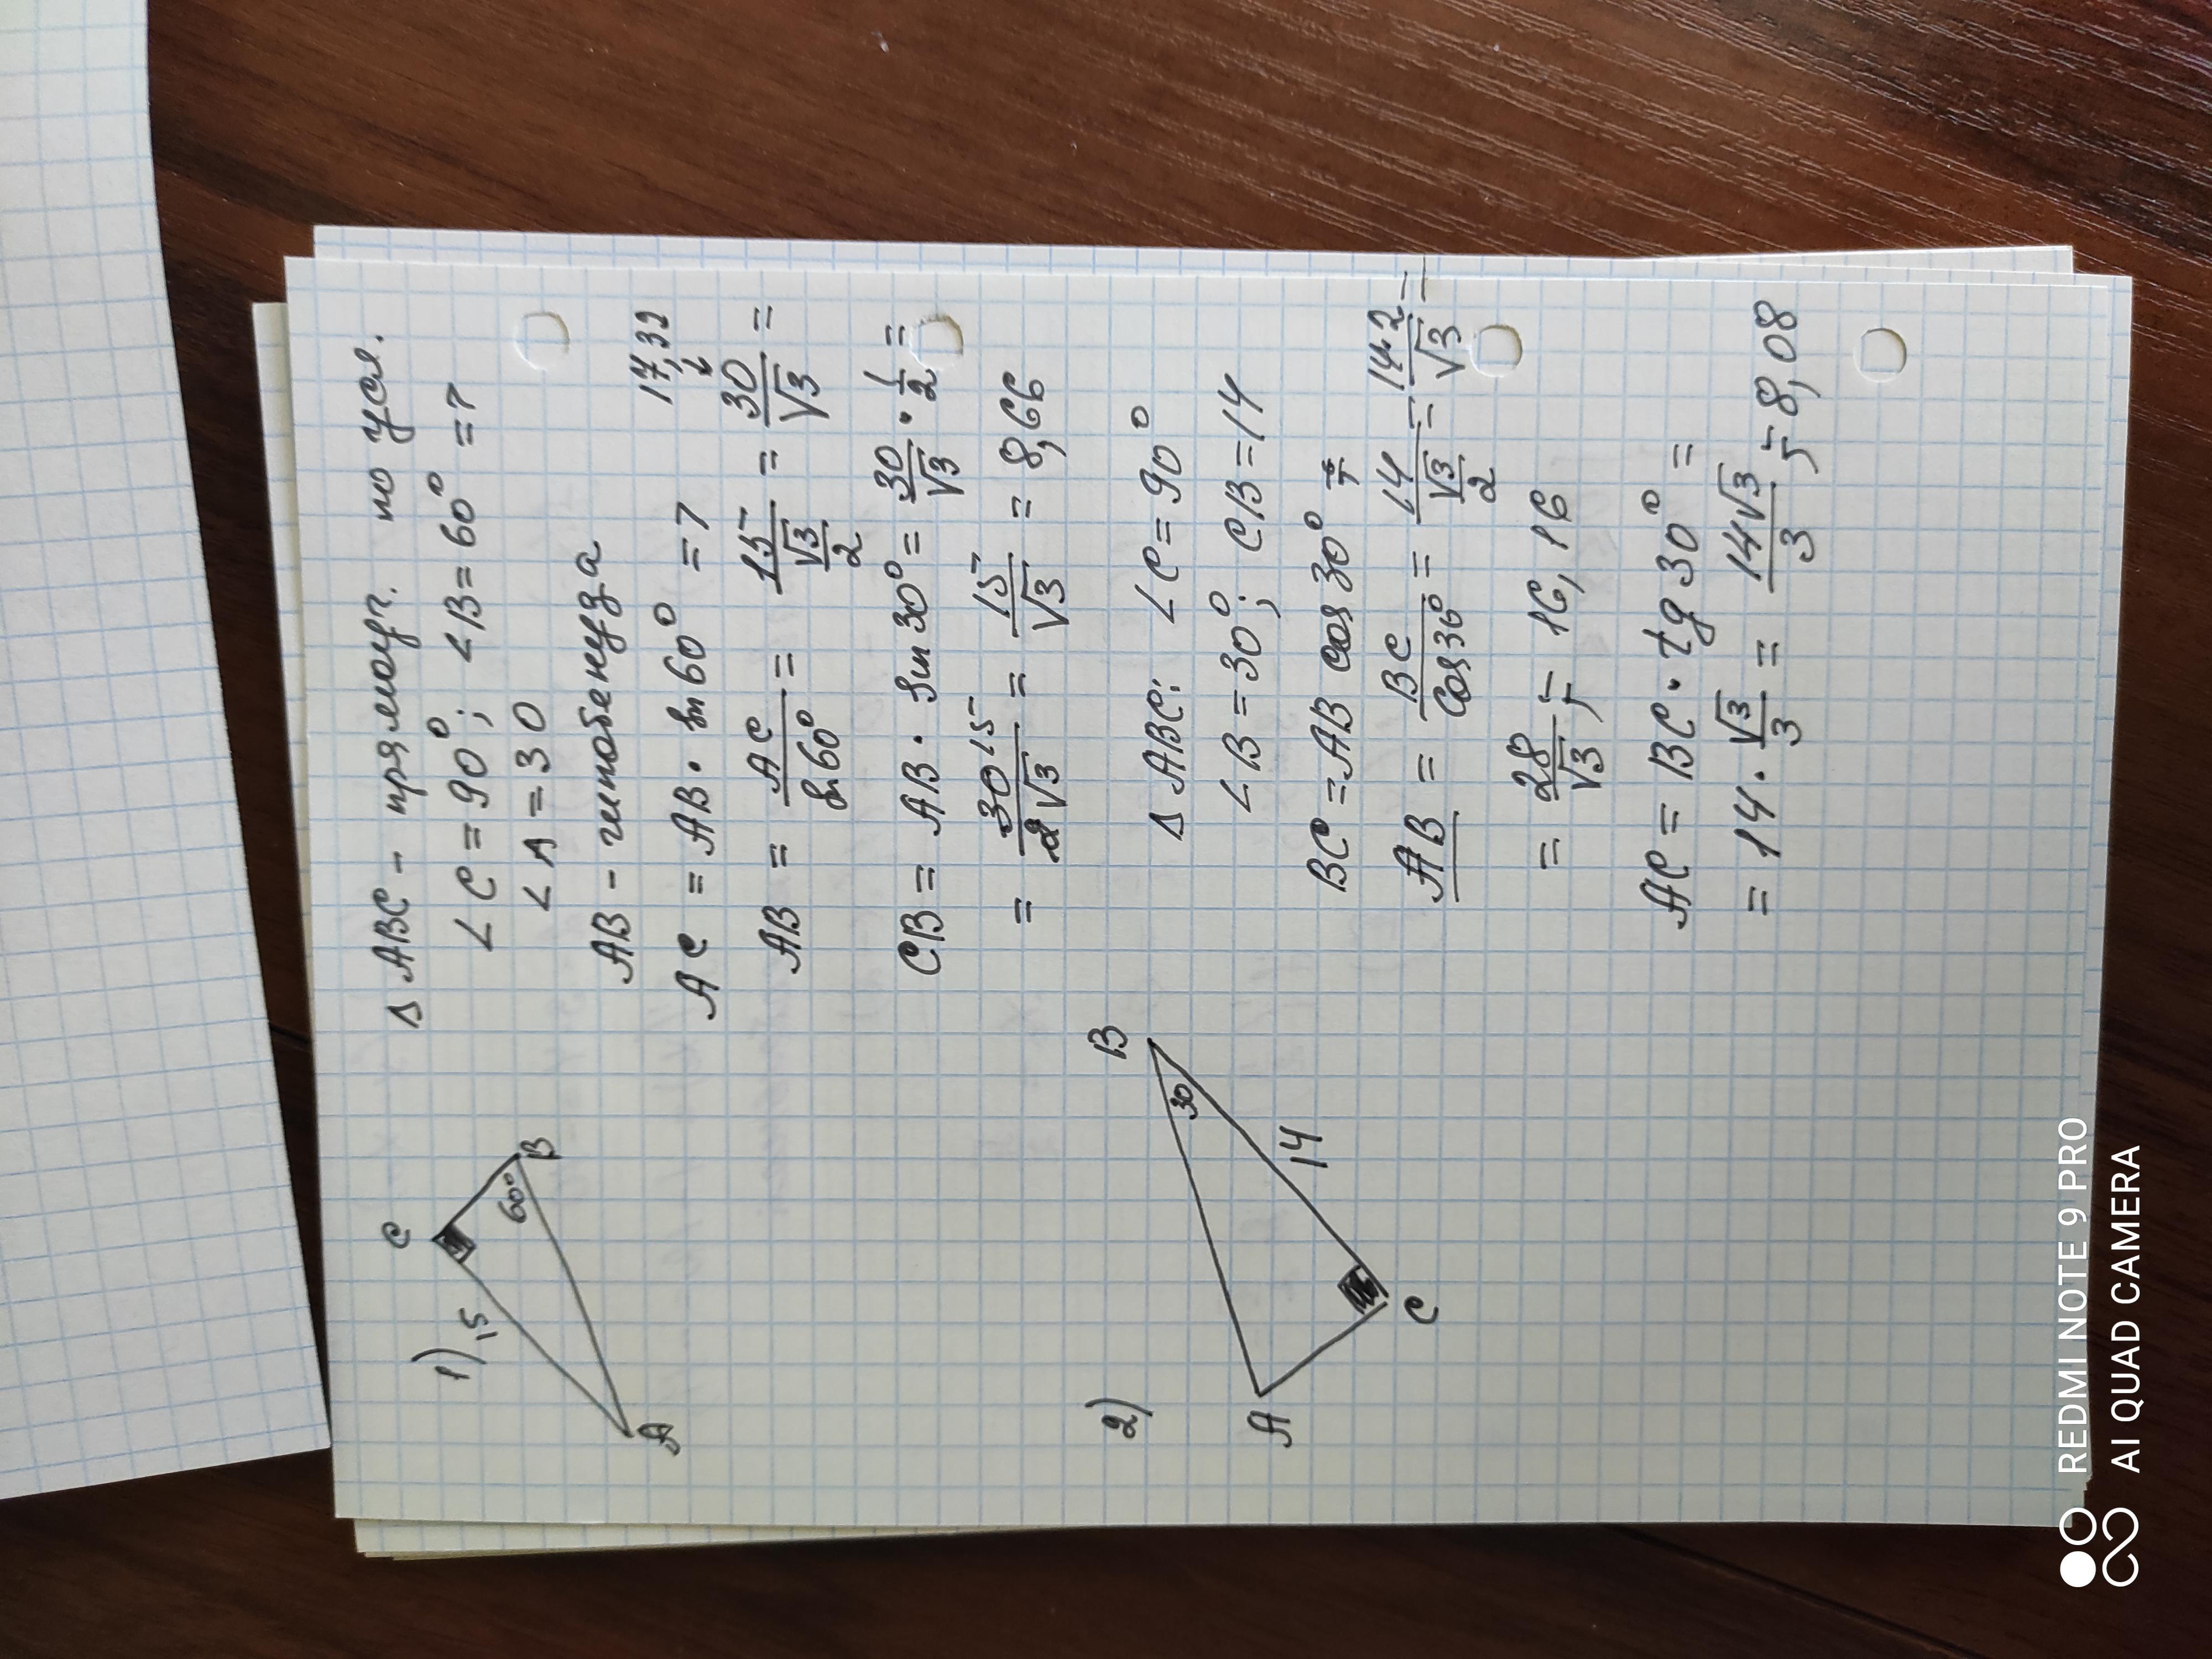 1)
C
15
60°
B
A
Δ ABC - прямоуг. по усл.
∠C = 90°; ∠B = 60° = ?
∠A = 30
AB - гипотенуза
AC = AB · sin 60° = ?
17,32
AB = AC/sin 60° = 15/(√3/2) = 30/√3 =
CB = AB · sin 30° = 30/√3 · 1/2 =
= 30 15/2√3 = 15/√3 = 8,66
2)
B
30
14
A
C
Δ ABC: ∠C = 90°
∠B = 30°; CB = 14
BC = AB cos 30°
AB = BC/cos 30° = 14/(√3/2) = 14·2/√3 =
= 28/√3 = 16,16
AC = BC · tg 30° =
= 14 · √3/3 = 14√3/3 = 8,08
REDMI NOTE 9 PRO
AI QUAD CAMERA